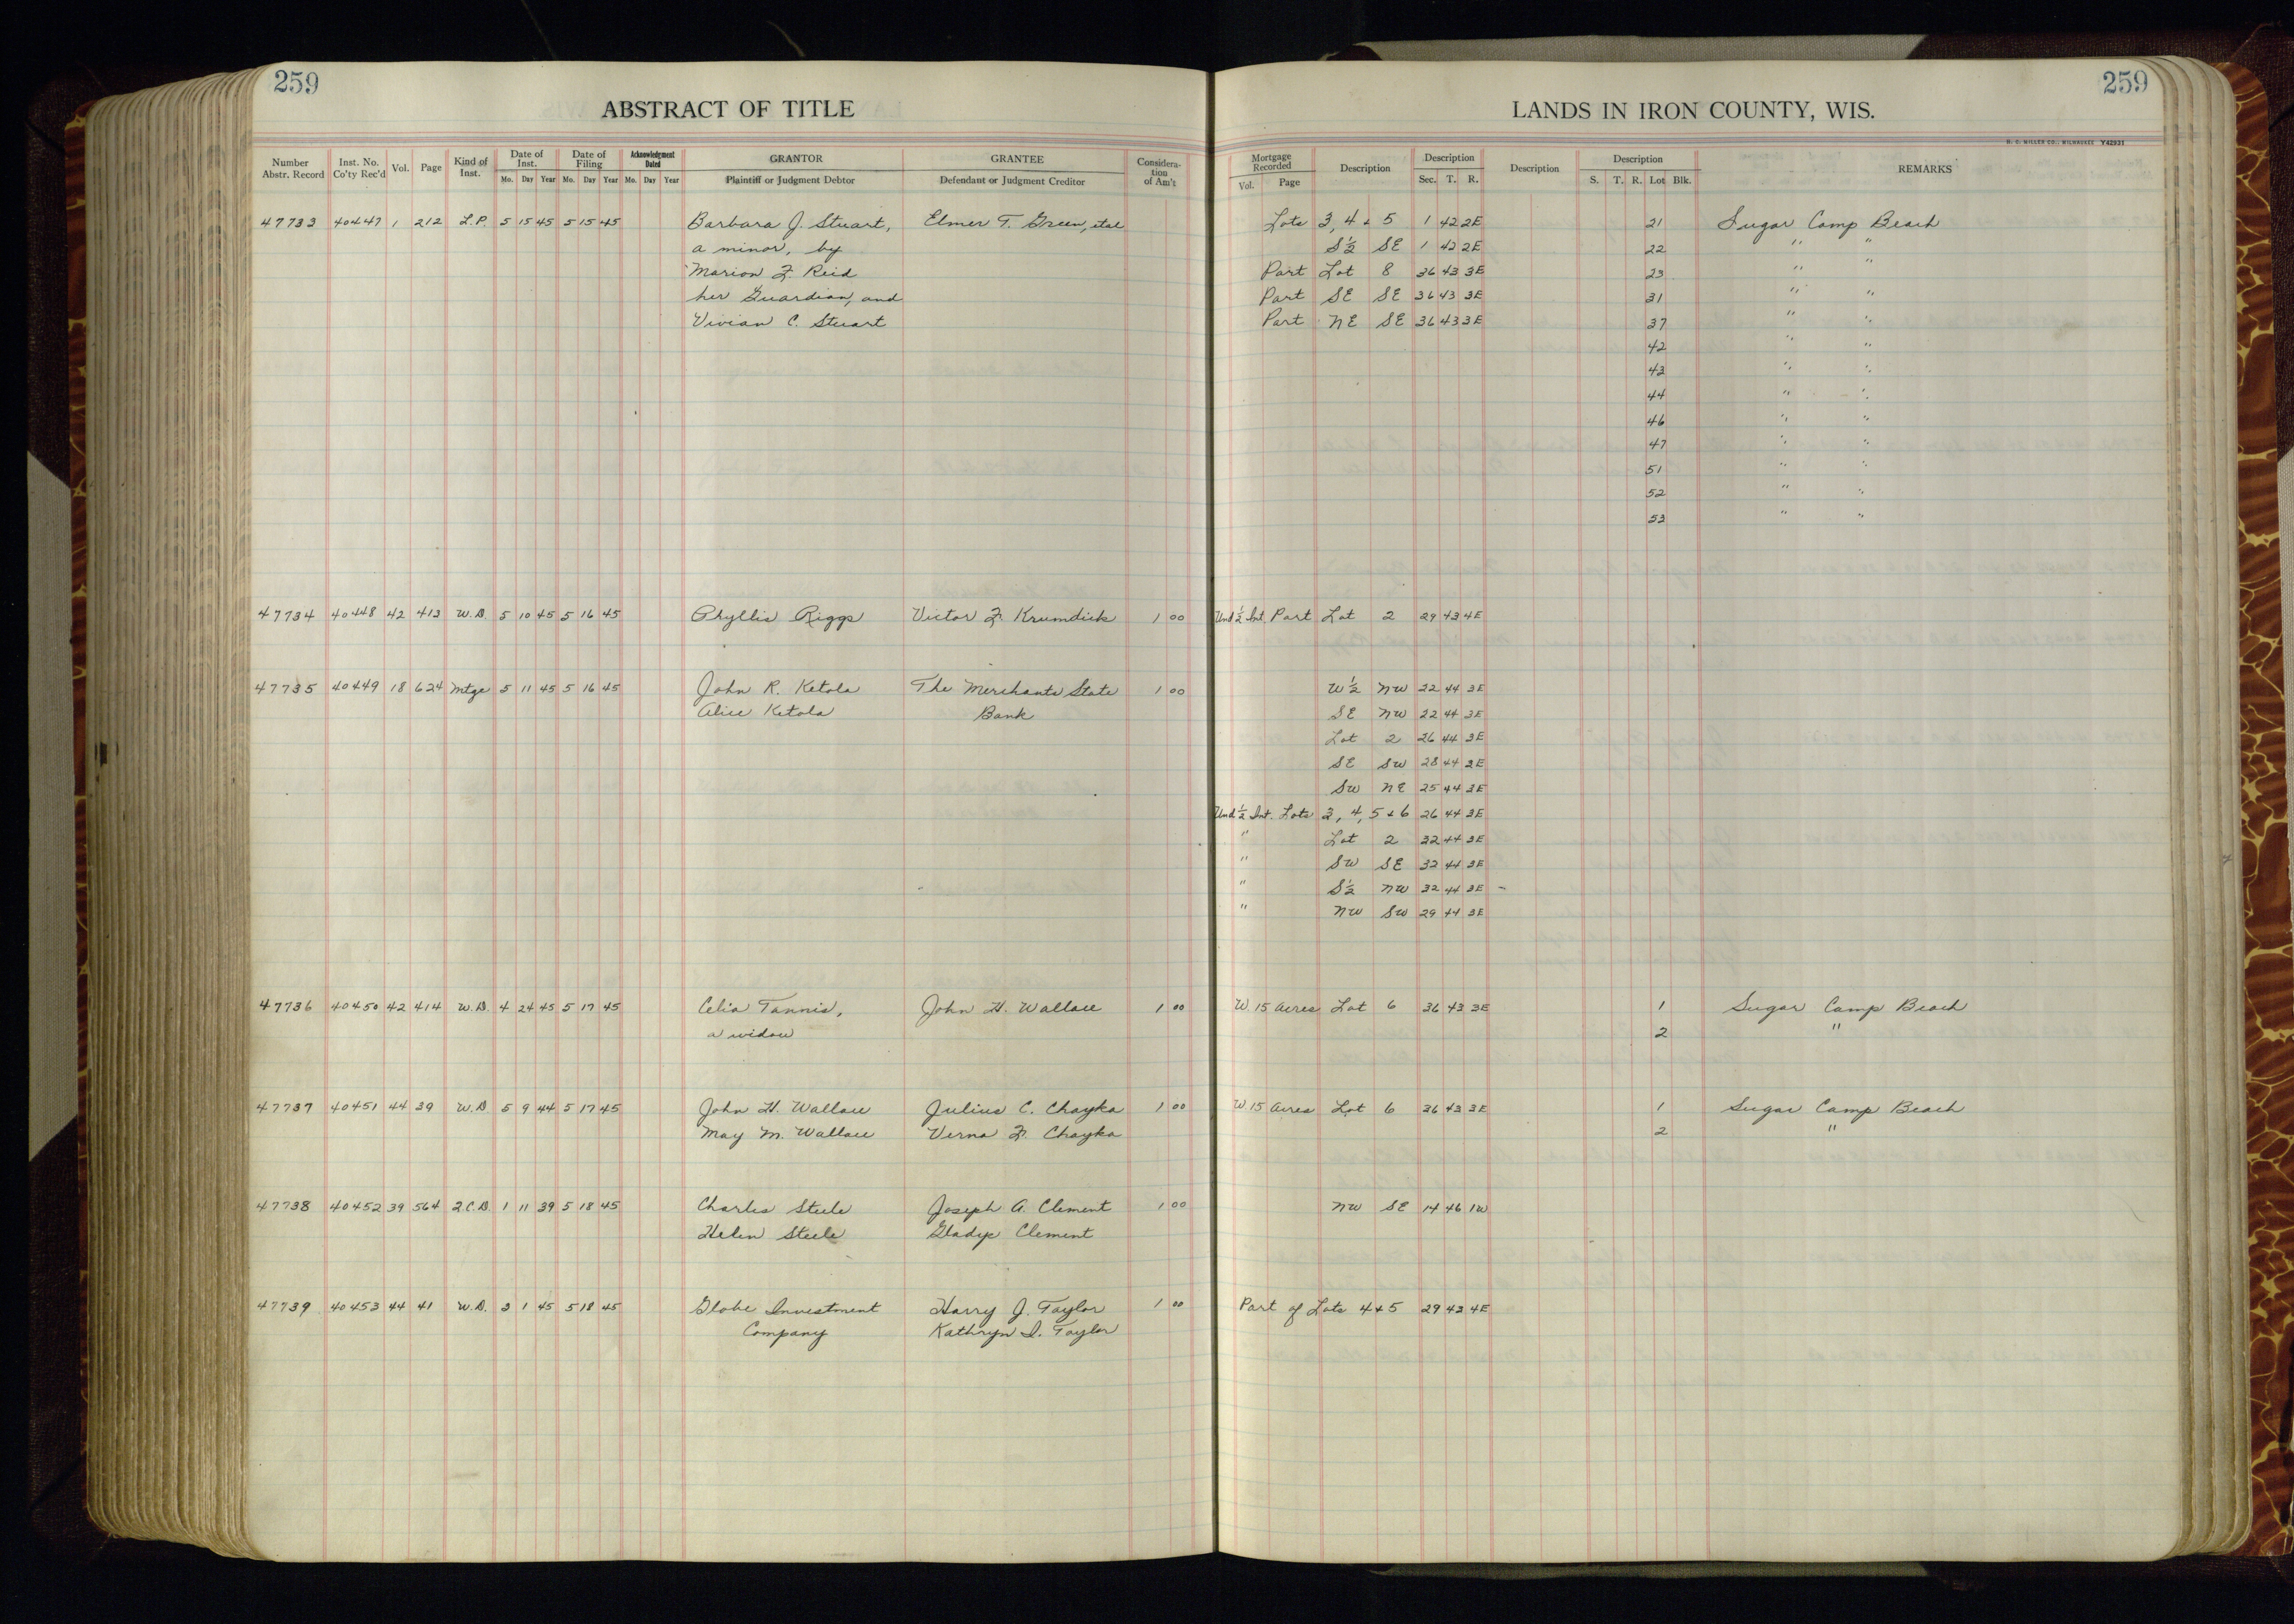 259
259
ABSTRACT OF TITLE
LANDS IN IRON COUNTY, WIS.
H. C. MILLER CO., MILWAUKEE Y42931
Number Abstr. Record Inst. No. Co'ty Rec'd Vol. Page Kind of Inst. Date of Inst. Mo. Day Year Date of Filing Mo. Day Year Acknowledgment Dated Mo. Day Year GRANTOR Plaintiff or Judgment Debtor GRANTEE Defendant or Judgment Creditor Considera-tion of Am't Mortgage Recorded Vol. Page Description Description Sec. T. R. Description Description S. T. R. Lot Blk. REMARKS
47733 40447 1 212 L.P. 5 15 45 5 15 45 Barbara J. Stuart, Elmer T. Green, etal Lots 3, 4 & 5 1 42 2E 21 Sugar Camp Beach
a minor, by S½ SE 1 42 2E 22 " "
Marion F. Reid Part Lot 8 36 43 3E 23 " "
her Guardian, and Part SE SE 36 43 3E 31 " "
Vivian C. Stuart Part NE SE 36 43 3E 37 " "
42 " "
43 " "
44 " "
46 " "
47 " "
51 " "
52 " "
53 " "
47734 40448 42 413 W.D. 5 10 45 5 16 45 Phyllis Riggs Victor F. Krumdick 1 00 Und ½ Int. Part Lot 2 29 43 4E
47735 40449 18 624 Mtge 5 11 45 5 16 45 John R. Ketola The Merchants State 1 00 W½ NW 22 44 3E
Alice Ketola Bank SE NW 22 44 3E
Lot 2 26 44 3E
SE SW 28 44 3E
SW NE 25 44 3E
Und ½ Int. Lots 3, 4, 5 & 6 26 44 3E
" Lot 2 32 44 3E
" SW SE 32 44 3E
" S½ NW 32 44 3E
" NW SW 29 44 3E
47736 40450 42 414 W.D. 4 24 45 5 17 45 Celia Tannis, John H. Wallace 1 00 W. 15 Acres Lot 6 36 43 3E 1 Sugar Camp Beach
a widow 2 "
47737 40451 44 39 W.D 5 9 44 5 17 45 John H. Wallace Julius C. Chayka 1 00 W. 15 Acres Lot 6 36 43 3E 1 Sugar Camp Beach
May M. Wallace Verna F. Chayka 2 "
47738 40452 39 564 Q.C.D. 1 11 39 5 18 45 Charles Steele Joseph A. Clement 1 00 NW SE 14 46 1W
Helen Steele Gladys Clement
47739 40453 44 41 W.D. 3 1 45 5 18 45 Globe Investment Harry J. Taylor 1 00 Part of Lots 4 & 5 29 43 4E
Company Kathryn I. Taylor